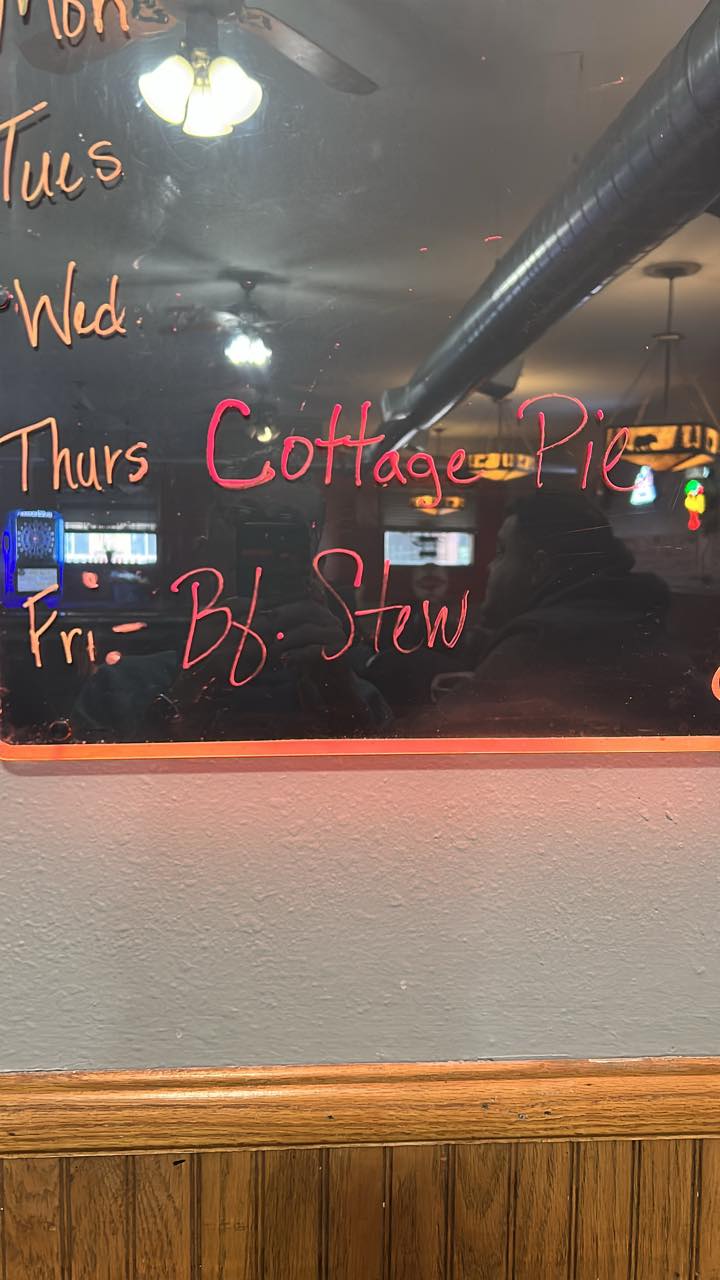 Mon
Tues
Wed
Thurs Cottage Pie
Fri.- Bf. Stew